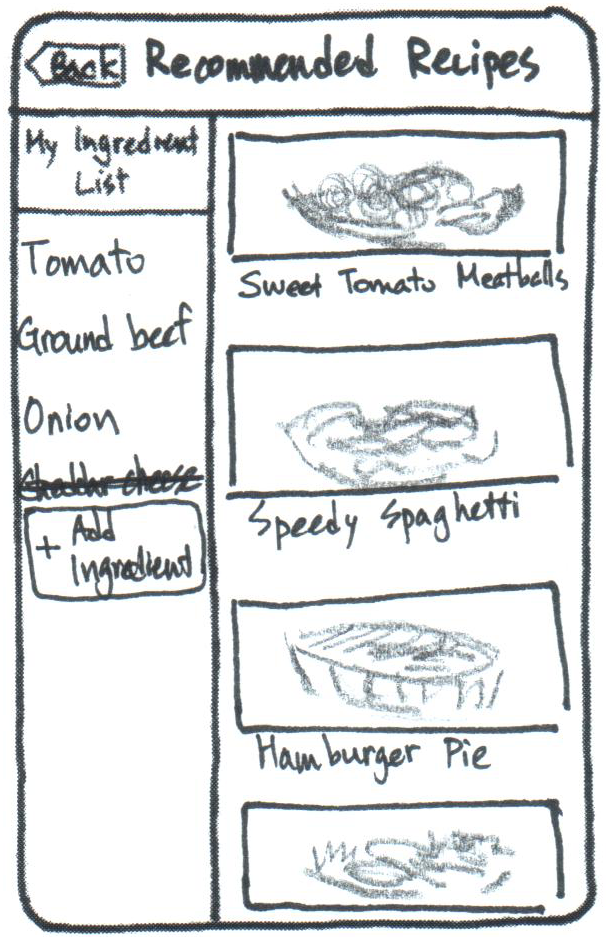 Back
Recommended Recipes
My Ingredient
List
Tomato
Ground beef
Onion
Cheddar cheese
+ Add
Ingredient
Sweet Tomato Meatballs
Speedy Spaghetti
Hamburger Pie